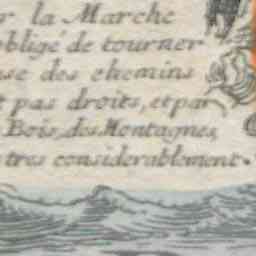 r la Marche
obligé de tourner
se des chemins
t pas droits, et par
Bois, des Montagnes,
tres considerablement.